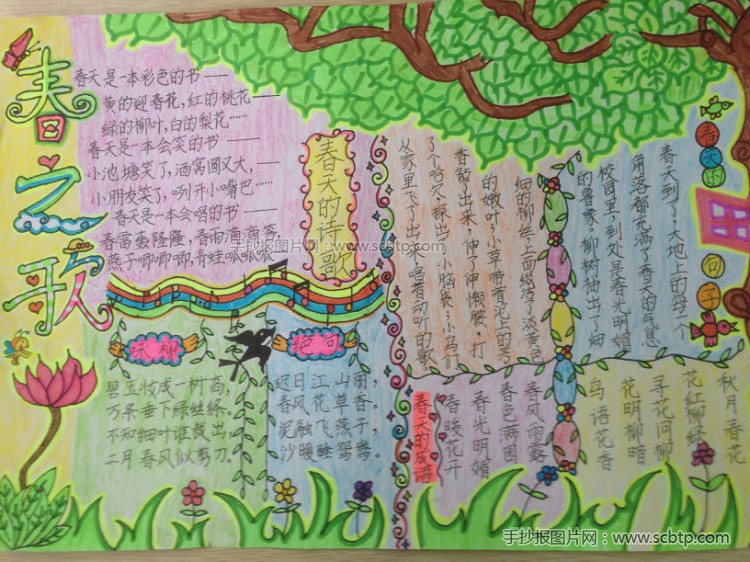 春之歌
春天是一本彩色的书——
黄的迎春花，红的桃花——
绿的柳叶，白的梨花……
春天是一本会笑的书——
小池塘笑了，酒窝圆又大，
小朋友笑了，咧开小嘴巴……
春天是一本会唱的书——
春雷轰隆隆，春雨滴滴答，
燕子唧唧唧，青蛙呱呱呱
春天的诗歌
手抄报图片网：www.scbtp.com
咏柳
碧玉妆成一树高，
万条垂下绿丝绦。
不知细叶谁裁出，
二月春风似剪刀。
绝句
迟日江山丽，
春风花草香。
泥融飞燕子，
沙暖睡鸳鸯。
春天的句子
春天到了！大地上的每一个
角落都充满了春天的气息
校园里，到处是春光明媚
的景象。柳树抽出了细
细的柳丝，上面缀满了淡黄色
的嫩叶；小草带着泥土的芳
香钻了出来，伸了伸懒腰，打
了个哈欠，探出了小脑袋；小鸟们
从家里飞了出来，唱着动听的歌
春天的成语
春暖花开
春光明媚
春色满园
春风雨露
鸟语花香
花明柳暗
寻花问柳
花红柳绿
秋月春花
手抄报图片网：www.scbtp.com